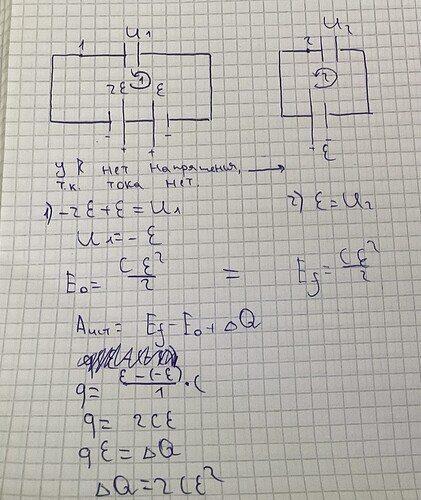 U₁
U₂
1
2
2ε
1
ε
2
- + + -
+ ε
У R нет напряжения, →
т.к. тока нет.
1) -2ε + ε = U₁
2) ε = U₂
U₁ = - ε
E₀ = Cε²/2 = E_f = Cε²/2
Aист = E_f - E₀ + ΔQ
q = (ε - (-ε))/1 · C
q = 2Cε
qε = ΔQ
ΔQ = 2Cε²